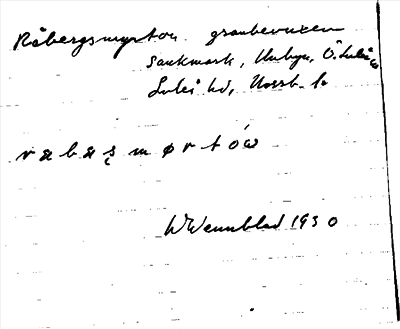 Råbergsmyrton granbevuxen
sankmark, Unbyn, Ö. Luleå
Luleå hd, Norrb. l.
r æ b æ ş m ø r t ó ω
W Wennblad 1930